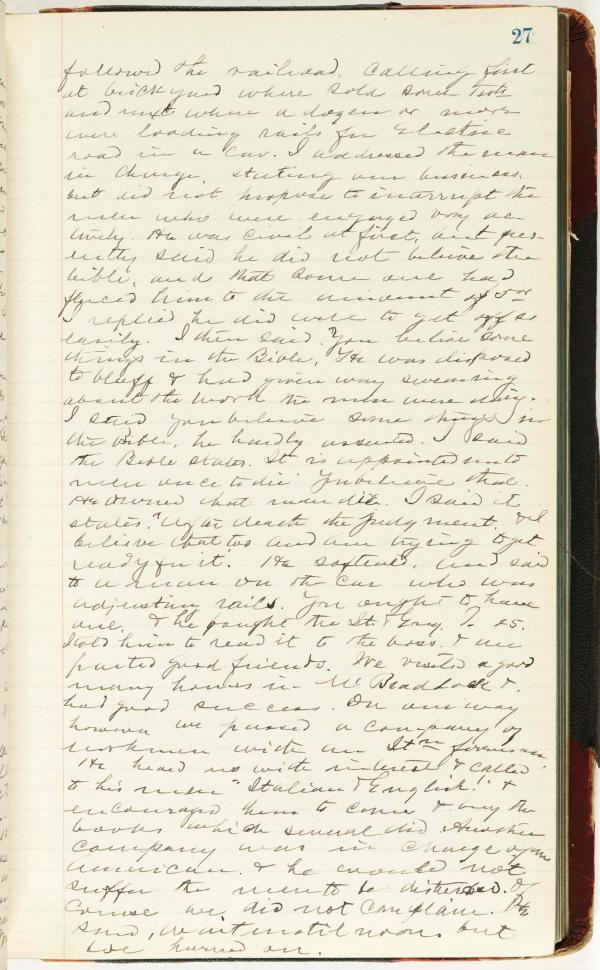 27
followed the railroad, calling first
at brickyard where sold some Tests
and next where a dozen or more
were loading rails for Electric
road in a car. I addressed the man
in charge, stating our business,
but did not propose to interrupt the
men who were engaged very ac-
tively. He was civil at first, but pres-
ently said he did not believe the
bible, and that some one had
fleeced him to the amount of 5 or
I replied he did well to get off so
easily. I then said "You believe some
things in the Bible, He was disposed
to bluff & had given way swearing
about the work the men were doing.
I said you believe some things in
the Bible, he hardly assented. I said
the Bible states. It is appointed unto
men once to die You believe that.
He owned that men die. I said it
states. "After death the Judgment. & I
believe that too and am trying to get
ready for it. He softened, and said
to a man on the car who was
adjusting rails. You ought to have
one. & he bought the It. & Eng. 25.
I told him to read it to the boss. & we
parted good friends. We visited a good
many homes in Braddock &
had good success. On our way
however we passed a company of
workmen with an Itn foreman,
He heard us with interest & called
to his men "Italian & English!" &
encouraged them to come & buy the
books which several did. Another
company was in charge of an
American. & he would not
suffer the men to be disturbed. Of
course we did not complain. He
said, wait until noon, but
we hurried on.